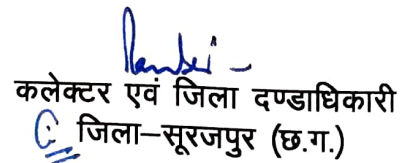 कलेक्टर एवं जिला दण्डाधिकारी
जिला–सूरजपुर (छ.ग.)